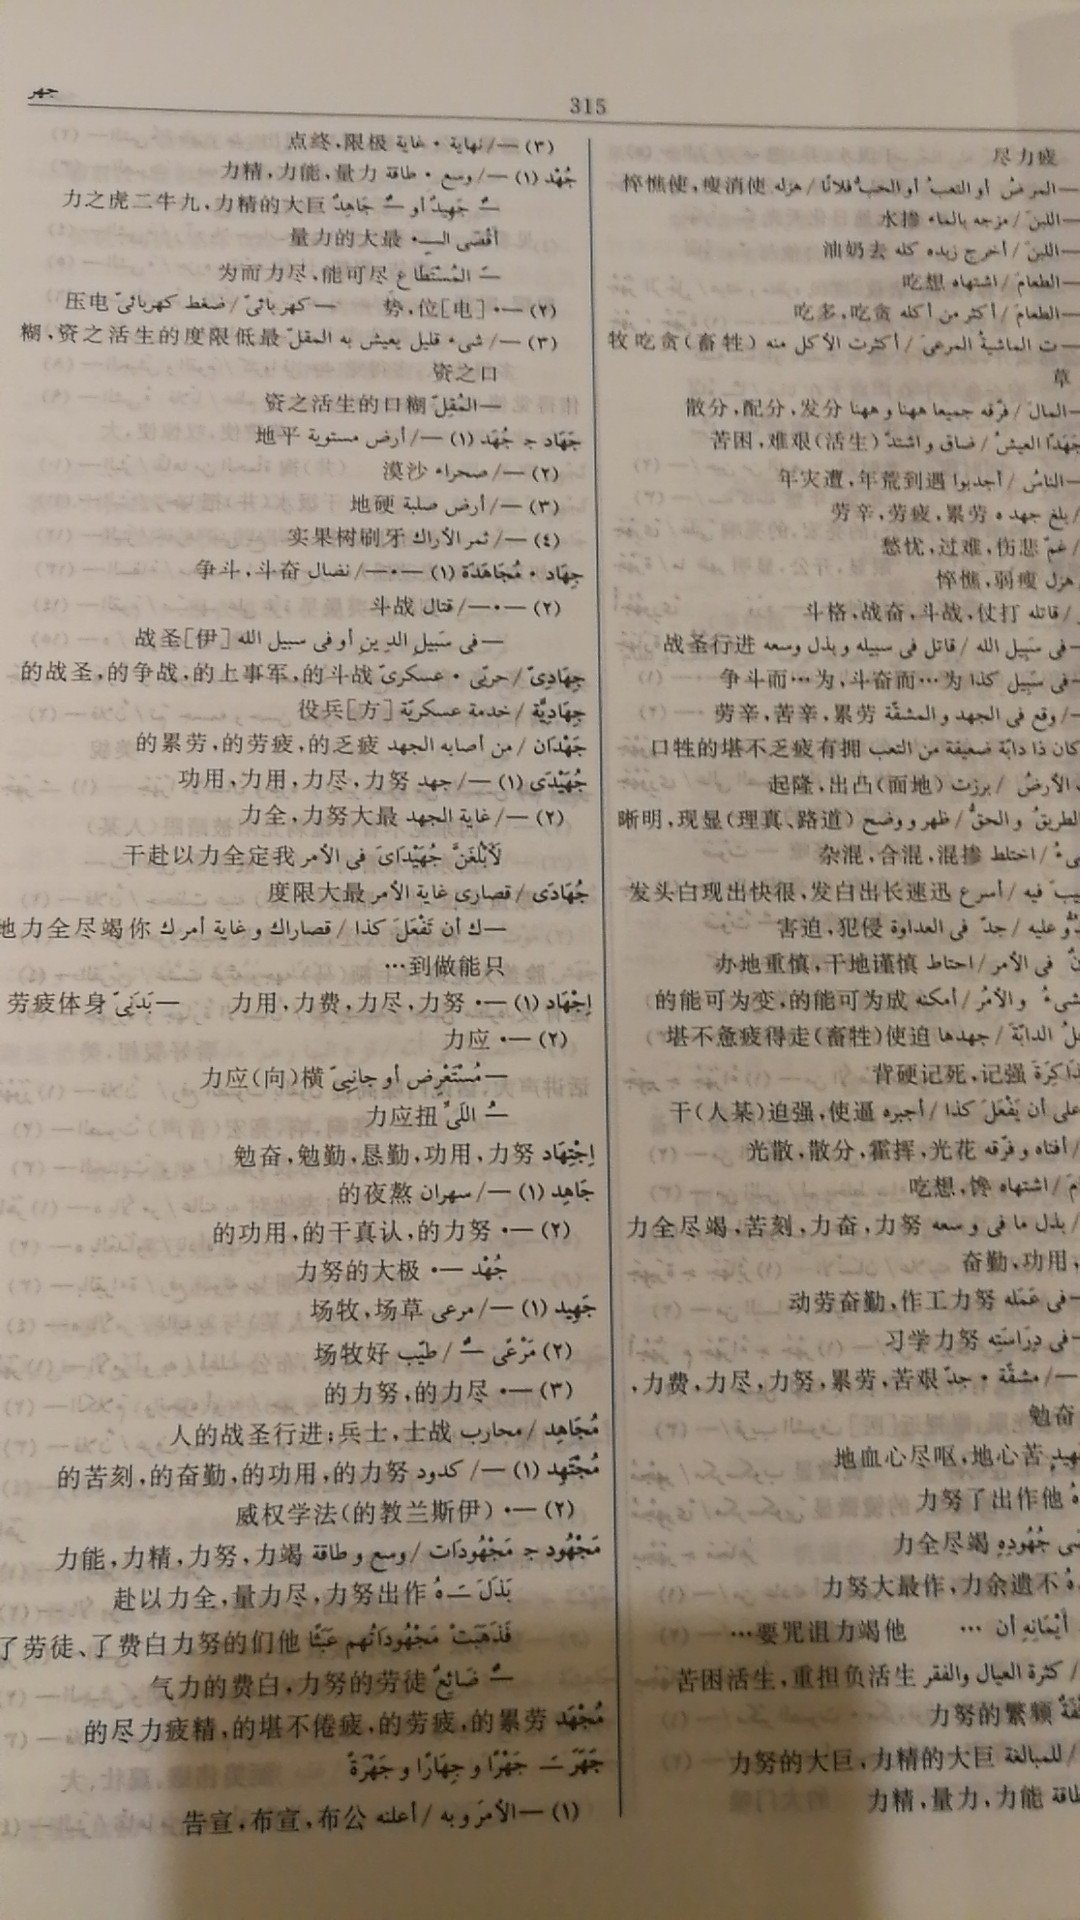 جهر
315
尽力疲
—المرضُ أو التعبُ أو الحبُّ فلانًا / هزله 使消瘦,使憔悴
—اللبنَ / مزجه بالماء 掺水
—اللبنَ / أخرج زبده كله 去奶油
—الطعامَ / اشتهاه 想吃
—الطعامَ / أكثر من أكله 贪吃,多吃
—ت الماشيةُ المرعى / أكثرت الأكل منه (牲畜)贪吃牧
草
—المالَ / فرّقه جميعا ههنا وههنا 分发,分配,分散
جَهَدًا العيشُ / ضاق واشتدّ (生活)艰难,困苦
—الناسُ / أجدبوا 遇到荒年,遭灾年
/ بلغ جهده 劳累,疲劳,辛劳
/ غمّ 悲伤,难过,忧愁
هزل 瘦弱,憔悴
/ قاتله 打仗,战斗,奋战,格斗
—فى سَبِيل الله / قاتل فى سبيله وبذل وسعه 进行圣战
—فى سَبِيل كذا 为…而奋斗,为…而斗争
/ وقع فى الجهد والمشقّة 劳累,辛苦,辛劳
كان ذا دابّة ضعيفة من التعب 拥有疲乏不堪的牲口
الأرضُ / برزت (地面)凸出,隆起
الطريقُ والحقُّ / ظهر ووضح (道路、真理)显现,明晰
/ اختلط 掺混,混合,混杂
فيه / أسرع 迅速长出白发,很快出现白头发
وعليه / جدّ فى العداوة 侵犯,迫害
فى الأمر / احتاط 慎谨地干,慎重地办
والأمرُ / أمكنه 成为可能的,变为可能的
الدابّةَ / جهدها 迫使(牲畜)走得疲惫不堪
ذاكِرَةَ 强记,死记硬背
على أن يَفْعَلَ كذا / أجبره 逼使,强迫(某人)干
/ أفناه وفرّقه 花光,挥霍,分散,散光
/ اشتهاه 馋,想吃
/ بذل ما فى وسعه 努力,奋力,刻苦,竭尽全力
,用功,勤奋
—فى عَمَله 努力工作,勤奋劳动
—فى دِرَاسَتِه 努力学习
—/ مشقّة • جدّ 艰苦,劳累,努力,尽力,费力,
奋勉
苦心地,呕尽心血地
他作出了努力
جُهُودِهِ 竭尽全力
不遗余力,作最大努力
أَيْمَانِهِ أن … 他竭力诅咒要…
/ كثرة العيال والفقر 生活负担重,生活困苦
频繁的努力
/ للمبالغة 巨大的精力,巨大的努力
能力,力量,精力
(٣) —/ نهاية • غاية 极限,终点
جُهْد (١) —/ وسع • طاقة 力量,能力,精力
—ٌ جَهِيدٌ أو —ٌ جَاهِدٌ 巨大的精力,九牛二虎之力
أقْصَى الـ—• 最大的力量
—َ المُسْتَطَاع 尽可能,尽力而为
(٢) —• [电]位,势 —كهربائىّ / ضغط كهربائىّ 电压
(٣) —/ شىء قليل يعيش به المقلّ 最低限度的生活之资,糊
口之资
—المُقِلّ 糊口的生活之资
جَهَاد ج جُهُد (١) —/ أرض مستوية 平地
(٢) —/ صحراء 沙漠
(٣) —/ أرض صلبة 硬地
(٤) —/ ثمر الأراك 牙刷树果实
جِهَاد • مُجَاهَدَة (١) —•—/ نضال 奋斗,斗争
(٢) —•—/ قتال 战斗
—فى سَبيل الدِين أو فى سبيل الله [伊]圣战
جِهَادِىّ / حربّى • عسكرىّ 战斗的,军事上的,战争的,圣战的
جِهَادِيَّة / خدمة عسكريّة [方]兵役
جَهْدَان / من أصابه الجهد 疲乏的,疲劳的,劳累的
جُهَيْدَى (١) —/ جهد 努力,尽力,用力,用功
(٢) —/ غاية الجهد 最大努力,全力
لَأَبْلُغَنَّ جُهَيْدَاىَ فى الأمر 我定全力以赴干
جُهَادَى / قصارى غاية الأمر 最大限度
—ك أن تَفْعَلَ كذا / قصاراك وغاية أمرك 你竭尽全力地
只能做到…
اِجْهَاد (١) —• 努力,尽力,费力,用力 —بَدَنِىّ 身体疲劳
(٢) —• 应力
—مُسْتَعْرِض أو جانِبِىّ 横(向)应力
—ُ اللَىّ 扭应力
اِجْتِهَاد 努力,用功,勤恳,勤勉,奋勉
جَاهِد (١) —/ سهران 熬夜的
(٢) —• 努力的,认真干的,用功的
جُهْدٌ —• 极大的努力
جَهِيد (١) —/ مرعى 草场,牧场
(٢) مَرْعًى —ٌ / طيّب 好牧场
(٣) —• 尽力的,努力的
مُجَاهِد / محارب 战士,士兵;进行圣战的人
مُجْتَهِد (١) —/ كدود 努力的,用功的,勤奋的,刻苦的
(٢) —• (伊斯兰教的)法学权威
مَجْهُود ج مَجْهُودَات / وسع وطاقة 竭力,努力,精力,能力
بَذَلَ —َهُ 作出努力,尽力量,全力以赴
فَذَهَبَتْ مَجْهُودَاتُهم عَبَثًا 他们的努力白费了、徒劳了
—ٌ ضَائِعٌ 徒劳的努力,白费的力气
مُجْهَد 劳累的,疲劳的,疲倦不堪的,精疲力尽的
جَهَرَ —َ جَهْرًا وجِهَارًا وجَهْرَةً
(١) —الأمرَ وبه / أعلنه 公布,宣布,宣告